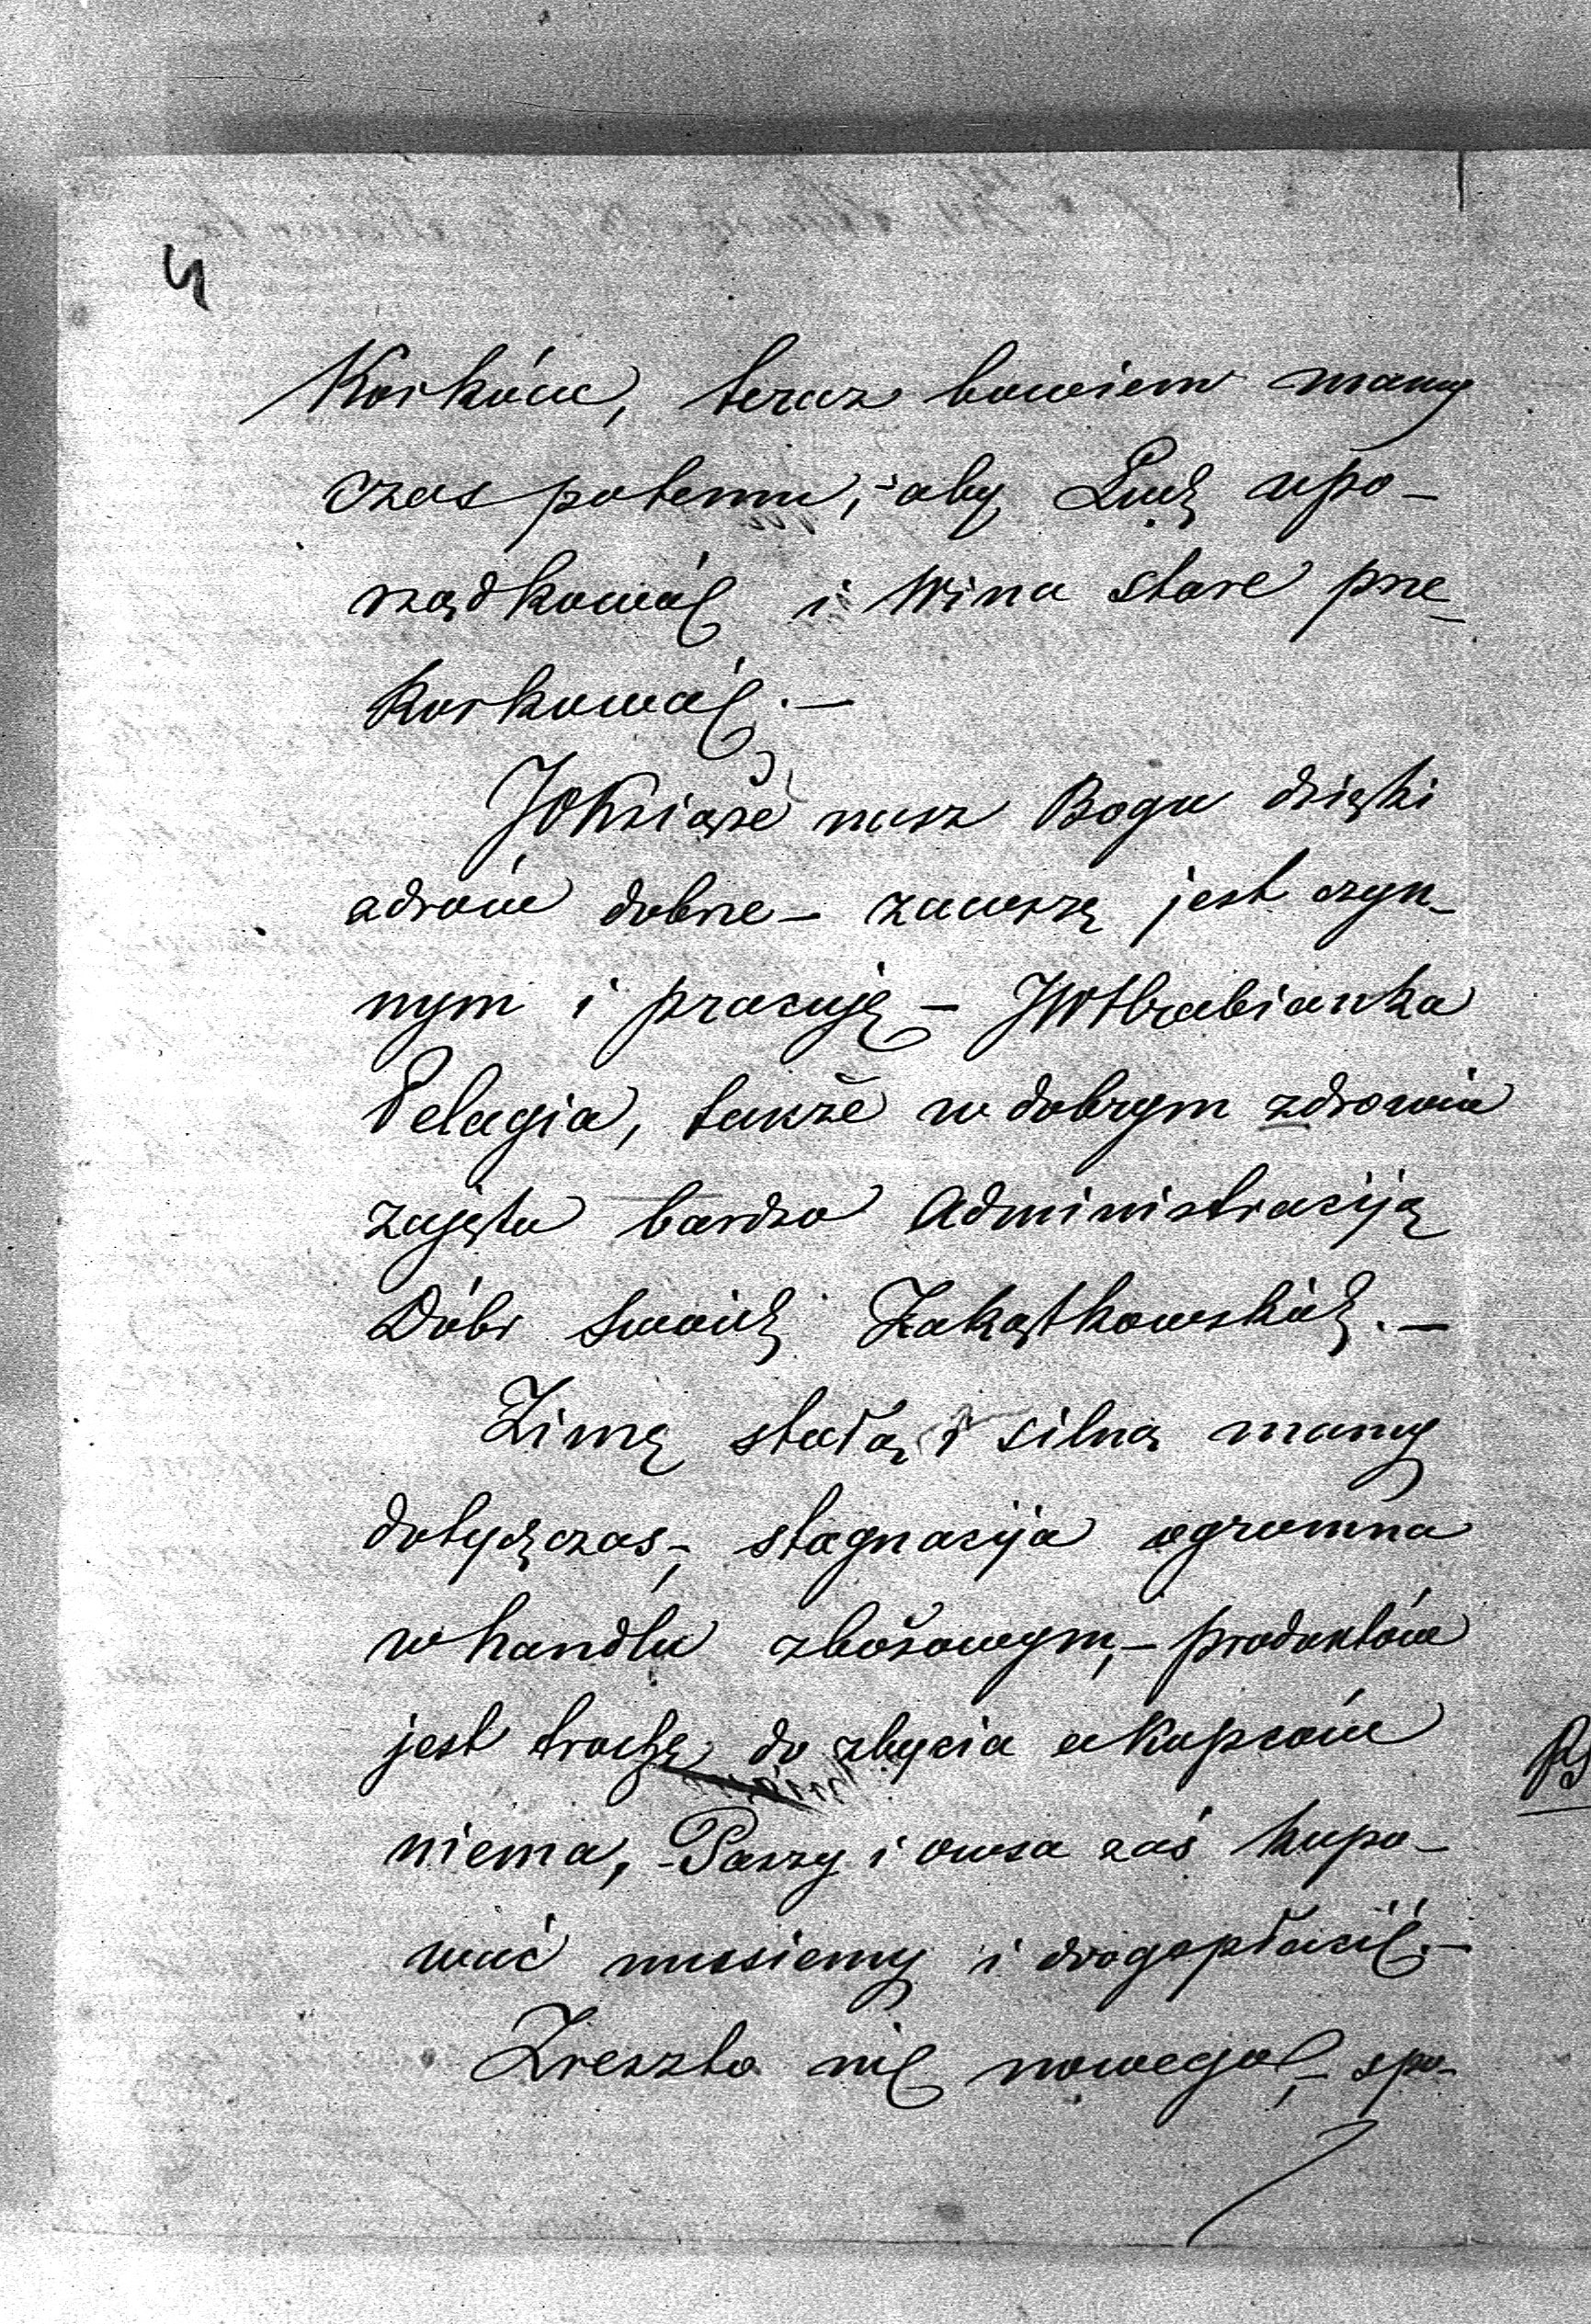 4
Korków, teraz bowiem mamy
czas potemu, - aby Loch upo-
rządkować i Wina stare prze-
korkować. -
JOKsiąże nasz Bogu dzięki
zdrów dobrze - zawszę jest czyn-
nym i pracuję - JWHrabianka
Pelagia, także w dobrym zdrowiu
zajęta bardzo Administraciją
Dóbr Swoich Zakątkowskich. -
Zimę stałą i silną mamy
dotychczas, - stagnacija ogromna
w handlu zbożowym, - produktów
jest trochę do zbycia a Kupców
niema, - Paszy i owsa zaś kupo-
wać musiemy i drogo płacić. -
Zreszto nic nowego, - spo-
PS